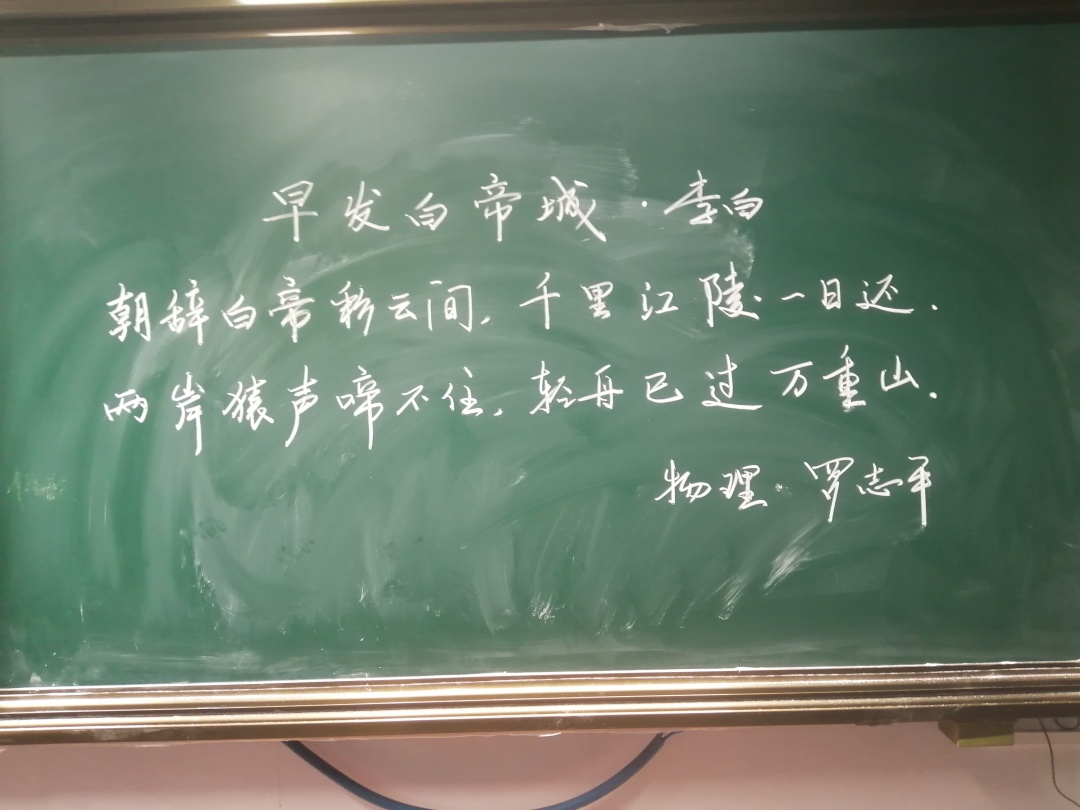 早发白帝城·李白
朝辞白帝彩云间,千里江陵一日还.
两岸猿声啼不住,轻舟已过万重山.
物理·罗志平